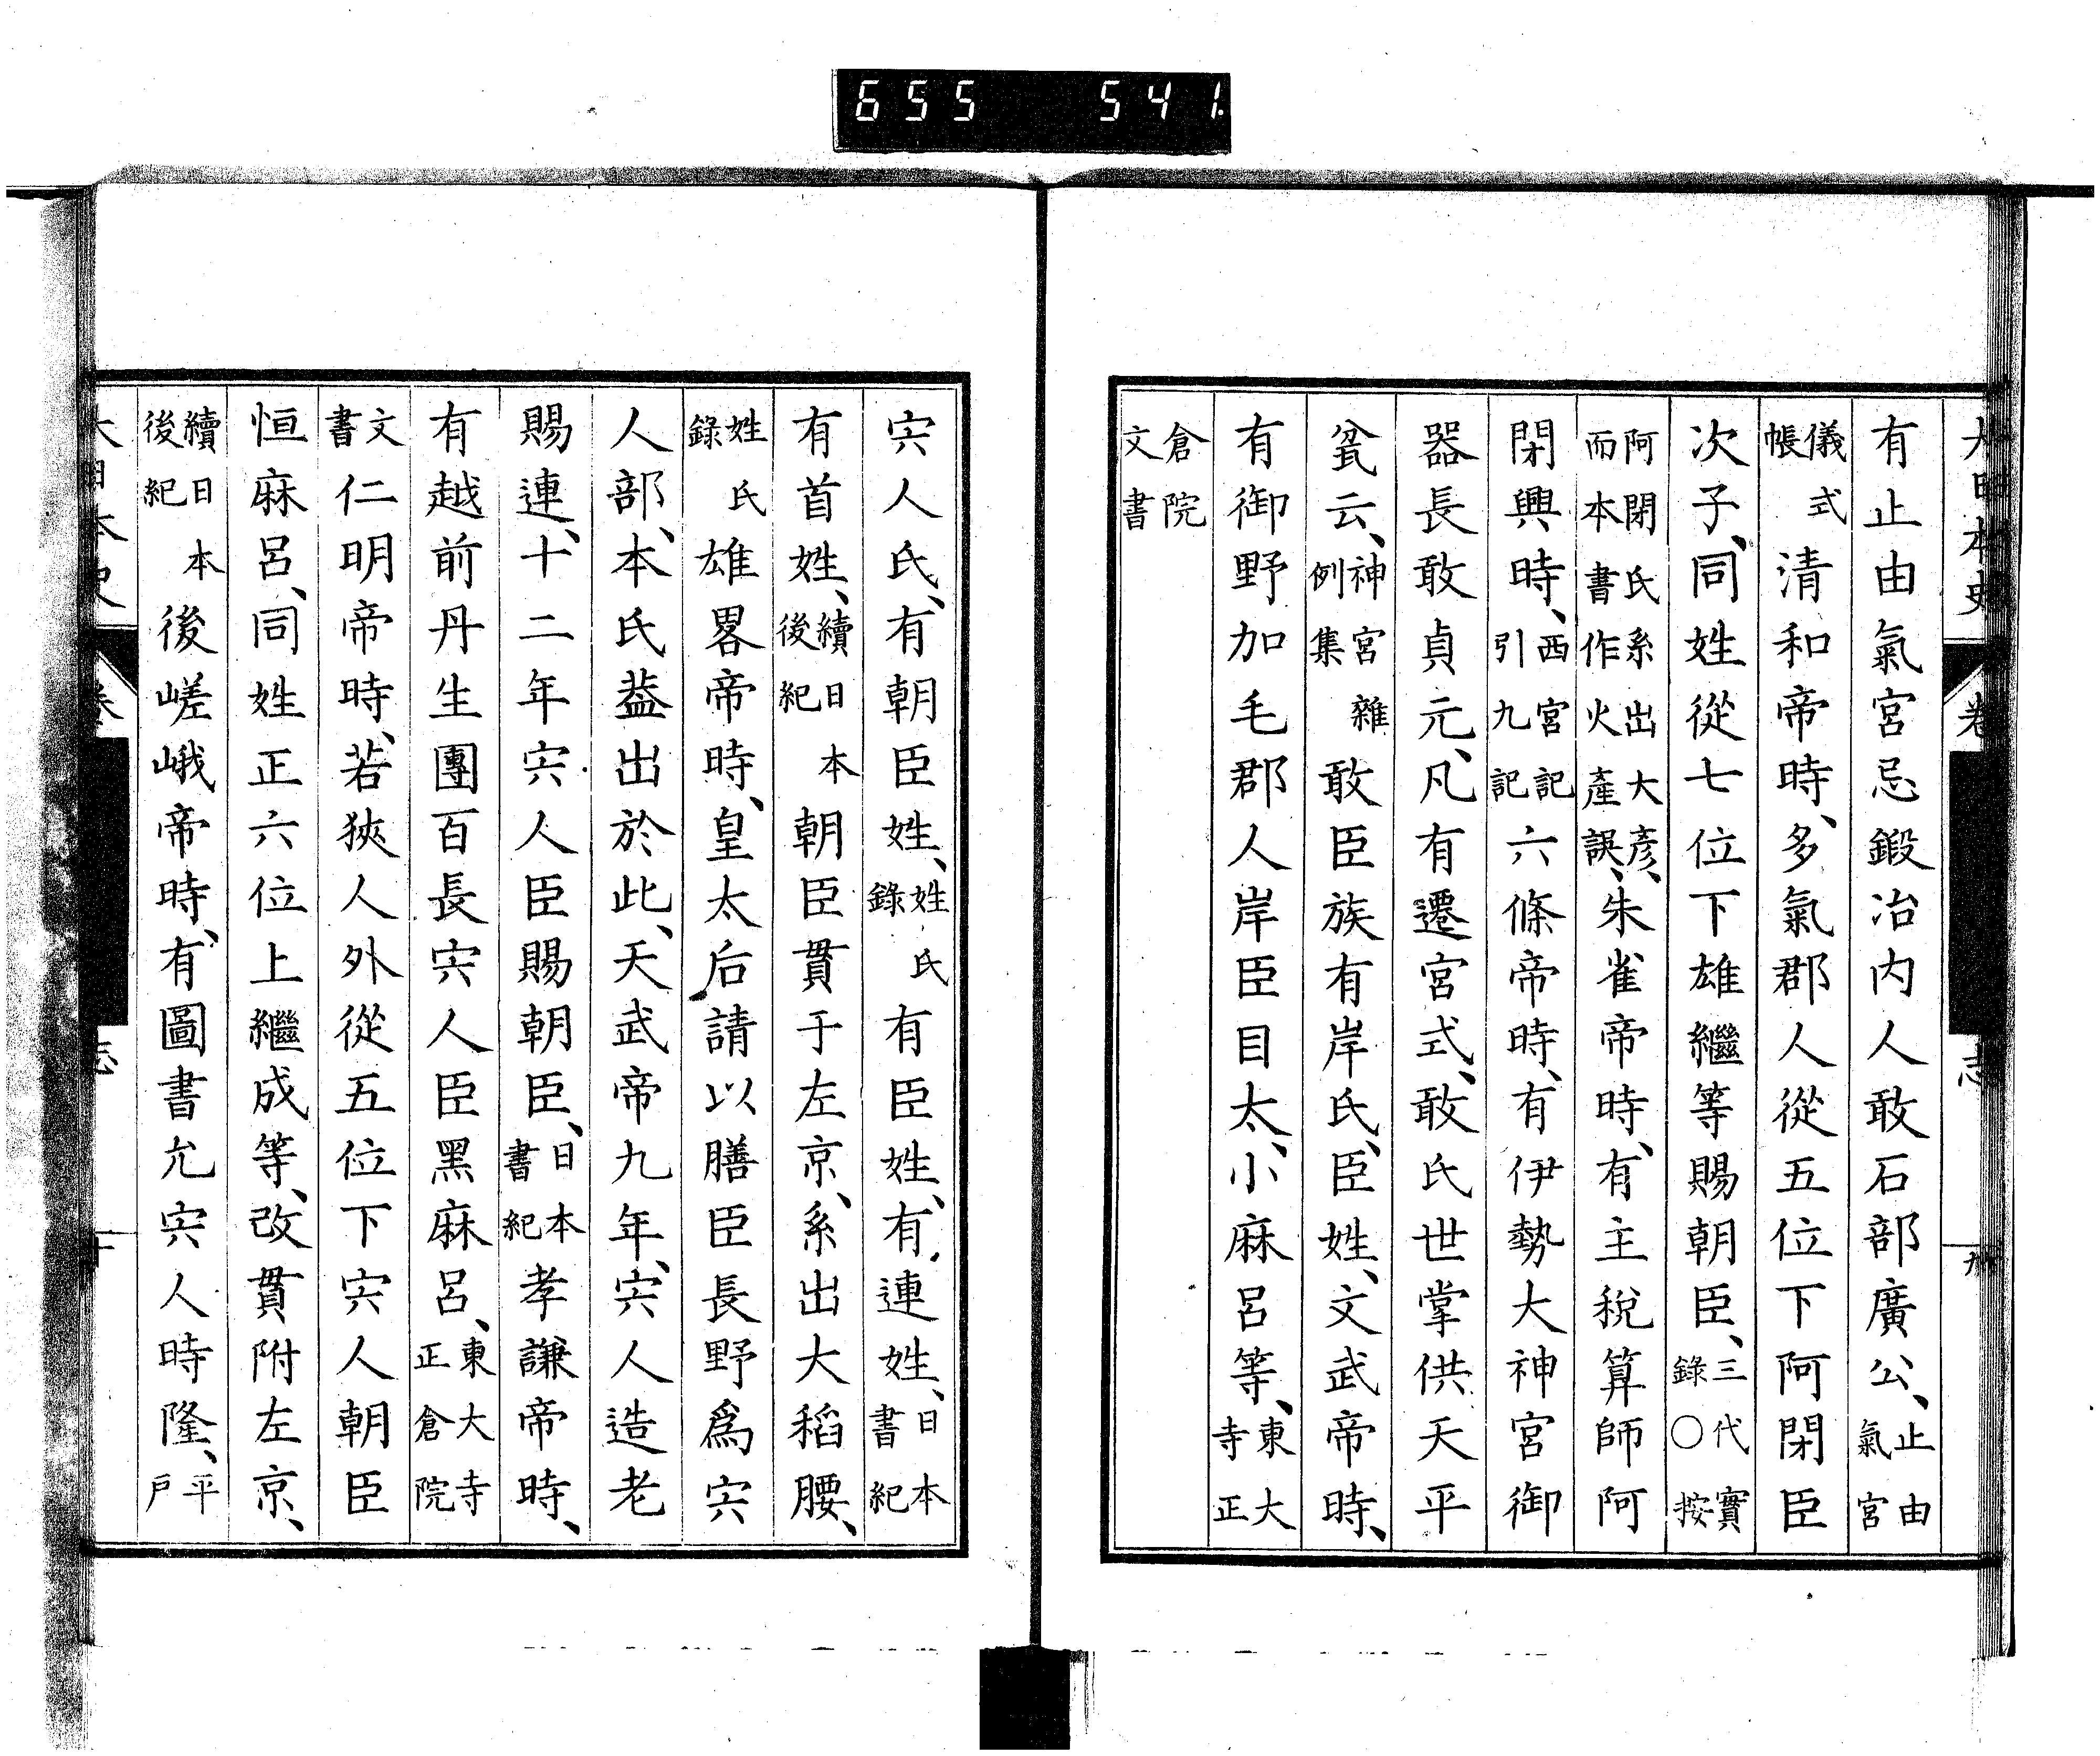 655 541.
大日本史 卷 志 九
有止由氣宮忌鍛冶内人敢石部廣公、止由氣宮
儀式帳清和帝時、多氣郡人從五位下阿閉臣
次子、同姓從七位下雄繼等賜朝臣、三代實錄○按
阿閉氏系出大彥、而本書作火產誤、朱雀帝時、有主稅算師阿
閉興時、西宮記引九記六條帝時、有伊勢大神宮御
器長敢貞元、凡有遷宮式、敢氏世掌供天平
瓫云、神宮雜例集敢臣族有岸氏、臣姓、文武帝時、
有御野加毛郡人岸臣目太、小麻呂等、東大寺正
倉院文書
宍人氏、有朝臣姓、姓氏錄有臣姓、有連姓、日本書紀
有首姓、續日本後紀朝臣貫于左京、系出大稻腰、
姓氏錄雄畧帝時、皇太后請以膳臣長野爲宍
人部、本氏葢出於此、天武帝九年、宍人造老
賜連、十二年宍人臣賜朝臣、日本書紀孝謙帝時、
有越前丹生團百長宍人臣黑麻呂、東大寺正倉院
文書仁明帝時、若狹人外從五位下宍人朝臣
恒麻呂、同姓正六位上繼成等、改貫附左京、
續日本後紀後嵯峨帝時、有圖書允宍人時隆、平戶
大日本史 卷 志 十